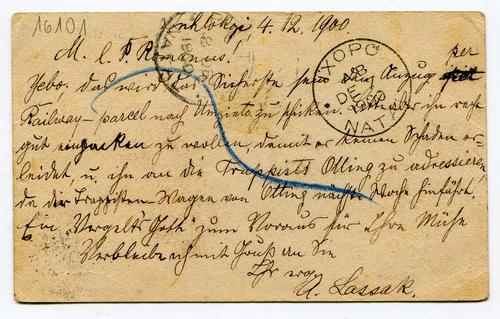 16101
4.12.1900
M. l. P. Romanus!
Gebo. das wird das Sicherste sein den Anzug per
Railway-parcel nach Umzinto zu schicken. aber in recht
gut einpacken zu wollen, damit er keinen Schaden er-
leidet u. ihn an die Trappists Otting zu adressieren
da der Trappisten-Wagen von Otting nächste Woche hinfährt.
Ein "Vergelts Gott" zum Voraus für Ihre Mühe
Verbleibe ich mit Gruß an Sie
Ihr erg.
A. Lassak.
IXOPO
DE
1900
NATAL